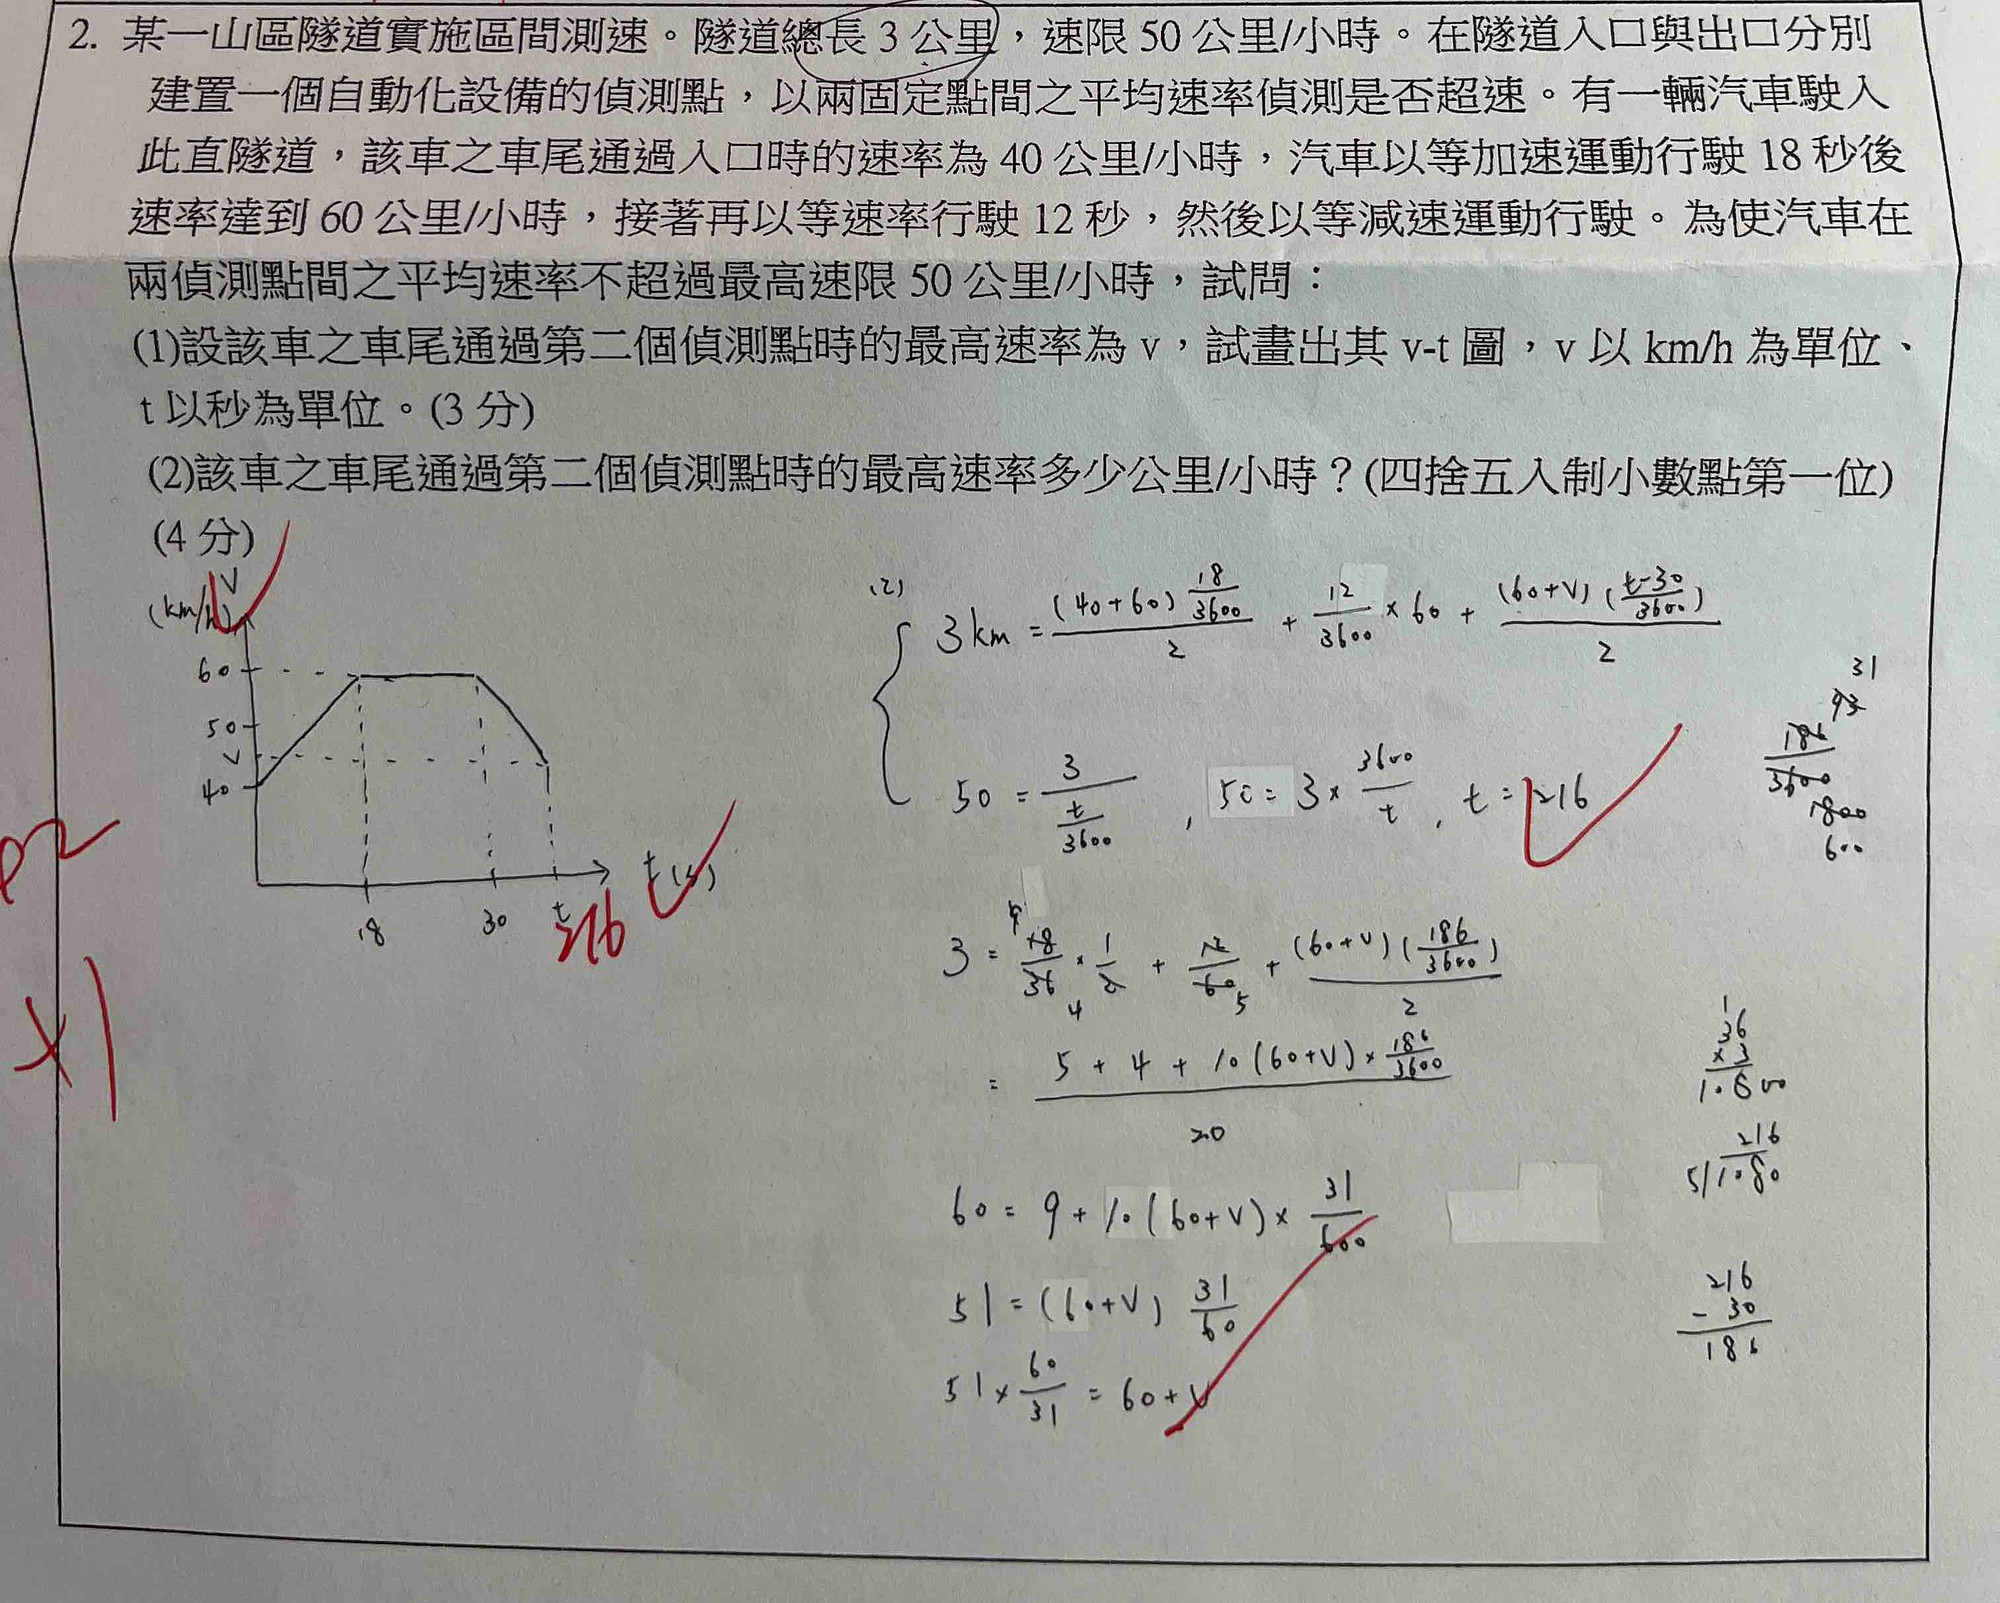 2. 某一山區隧道實施區間測速。隧道總長 3 公里，速限 50 公里/小時。在隧道入口與出口分別
建置一個自動化設備的偵測點，以兩固定點間之平均速率偵測是否超速。有一輛汽車駛入
此直隧道，該車之車尾通過入口時的速率為 40 公里/小時，汽車以等加速運動行駛 18 秒後
速率達到 60 公里/小時，接著再以等速率行駛 12 秒，然後以等減速運動行駛。為使汽車在
兩偵測點間之平均速率不超過最高速限 50 公里/小時，試問：
(1)設該車之車尾通過第二個偵測點時的最高速率為 v，試畫出其 v-t 圖，v 以 km/h 為單位、
t 以秒為單位。(3 分)
(2)該車之車尾通過第二個偵測點時的最高速率多少公里/小時？(四捨五入制小數點第一位)
(4 分)
V
(km/h)
60
50
V
40
18
30
t
216
t(s)
(2)
3km = (40+60) 18/3600 / 2 + 12/3600 × 60 + (60+V) (t-30/3600) / 2
50 = 3 / t/3600 , 50 = 3 × 3600/t , t = 216
3 = 18/36 × 1/2 + 12/60 + (60+V) (186/3600) / 2
= 5 + 4 + 10 (60+V) × 186/3600 / 20
60 = 9 + 10 (60+V) × 31/600
51 = (60+V) 31/60
51 × 60/31 = 60+V
31
93
186
3600
1800
600
1
36
× 3
10800
216
5/1080
216
- 30
186